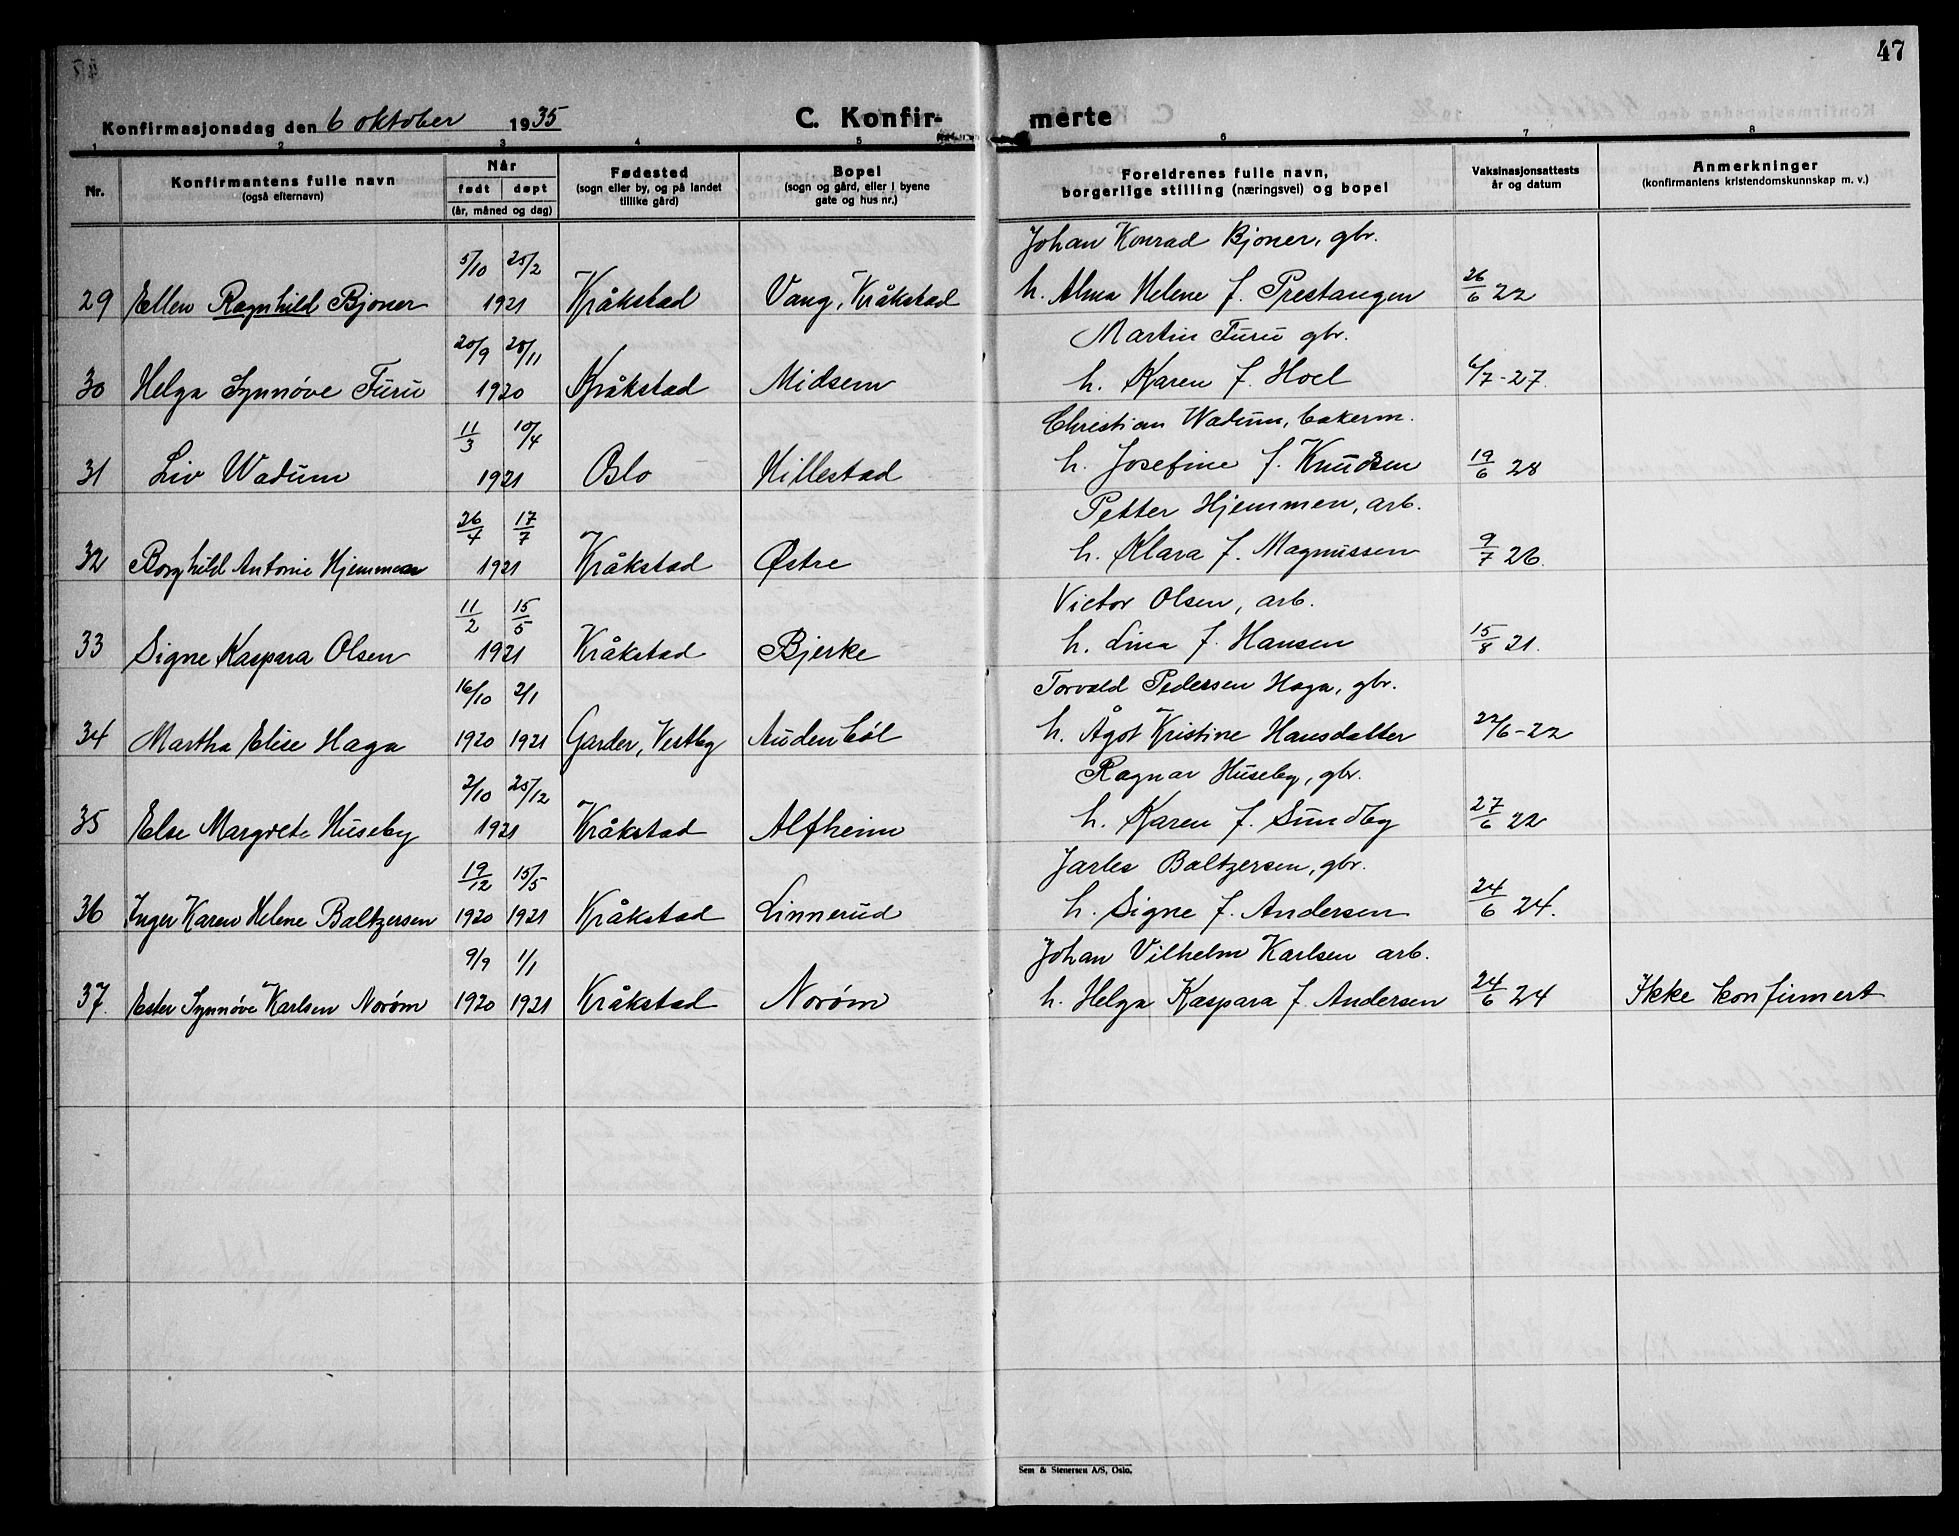 47
Konfirmasjonsdag den 6 oktober 1935 C. Konfir- merte
1 2 3 4 5 6 7 8
Nr. Konfirmantens fulle navn (også efternavn) Når født døpt (år, måned og dag) Fødested (sogn eller by, og på landet tillike gård) Bopel (sogn og gård, eller i byene gate og hus nr.) Foreldrenes fulle navn, borgerlige stilling (næringsvei) og bopel Vaksinasjonsattests år og datum Anmerkninger (konfirmantens kristendomskunnskap m. v.)
5/10 25/2 Johan Konrad Bjoner, gbr.
29 Ellen Ragnhild Bjoner 1921 Kråkstad Vang, Kråkstad h. Alma Helene f. Prestangen 26/6 22
20/9 28/11 Martin Furu gbr.
30 Helga Synnøve Furu 1920 Kråkstad Midsem h. Karen f. Hoel 6/7-27.
11/3 10/4 Christian Wadum, bakerm.
31 Liv Wadum 1921 Oslo Hillestad h. Josefine f. Knudsen 19/6 28
26/4 17/7 Petter Hjemmen, arb.
32 Borghild Antonie Hjemmen 1921 Kråkstad Østre h. Klara f. Magnussen 9/7 26.
11/2 15/5 Victor Olsen, arb.
33 Signe Kaspara Olsen 1921 Kråkstad Bjerke h. Lina f. Hansen 15/8 21.
16/10 2/1 Torvald Pedersen Haga, gbr.
34 Martha Elise Haga 1920 1921 Garder, Vestby Audenbøl h. Ågot Kristine Hansdatter 22/6-22
2/10 25/12 Ragnar Huseby, gbr.
35 Else Margrete Huseby 1921 Kråkstad Alfheim h. Karen f. Sundby 27/6 22
19/12 15/5 Jarles Baltzersen, gbr.
36 Inger Karen Helene Baltzersen 1920 1921 Kråkstad Linnerud h. Signe f. Andersen 24/6 24.
9/9 1/1 Johan Vilhelm Karlsen arb.
37. Ester Synnøve Karlsen Norøm 1920 1921 Kråkstad Norøm h. Helga Kaspara f. Andersen 24/6 24 Ikke konfirmert
Sem & Stenersen A/S, Oslo.